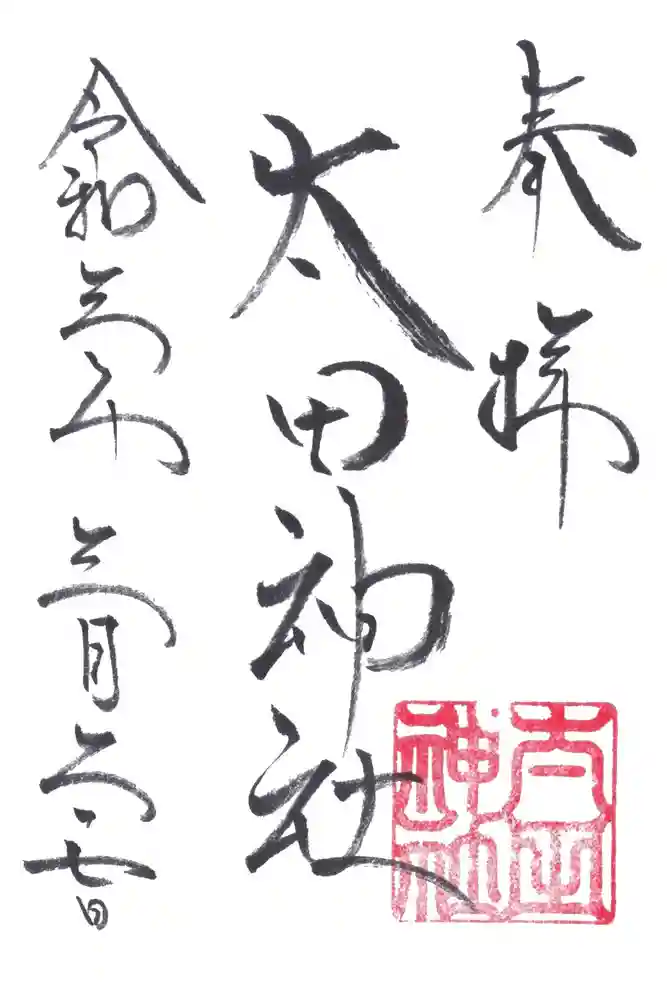 奉拝
太田神社
令和三年三月 七日
太田
神社